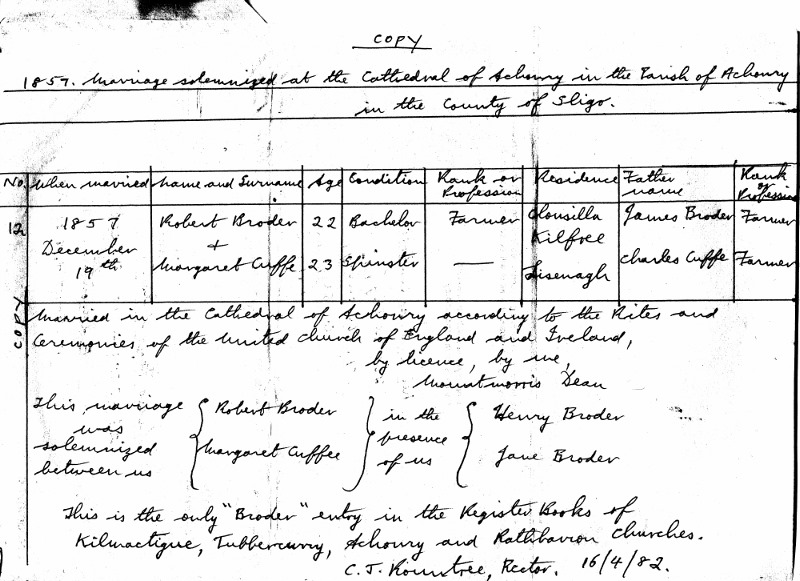 COPY
1857. Marriage solemnized at the Cathedral of Achonry in the Parish of Achonry
in the County of Sligo.
No. When married Name and Surname Age Condition Rank or Profession Residence Father name Rank or Profession
12 1857 Robert Broder 22 Bachelor Farmer Clonsilla James Broder Farmer
December + Kilfree
19th Margaret Cuffe 23 Spinster — Lisenagh Charles Cuffe Farmer
COPY
Married in the Cathedral of Achonry according to the Rites and
Ceremonies of the United Church of England and Ireland,
by licence, by me,
Mountmorris Dean
This marriage { Robert Broder } in the { Henry Broder
was presence
solemnized { Margaret Cuffee } of us { Jane Broder
between us
This is the only "Broder" entry in the Register Books of
Kilmactigue, Tubbercurry, Achonry and Rathbarron Churches.
C. J. Rountree, Rector. 16/4/82.